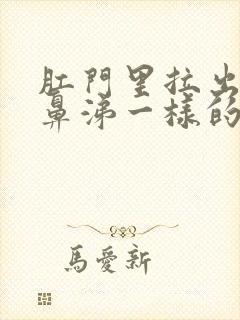 肛門里拉出
鼻涕一樣的
馬愛新